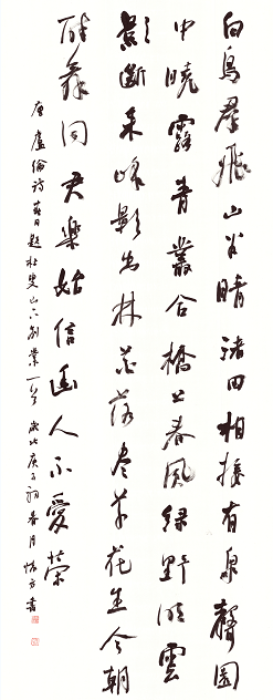 白鳥群飛山半晴渚田相接有泉聲園
中曉露青叢合橋上春風綠野明雲
影斷來峰影出林花落盡草花生今朝
醉舞同君樂始信幽人不愛榮
唐盧綸詩春日題杜叟山下別業一首歲次庚子初春月書